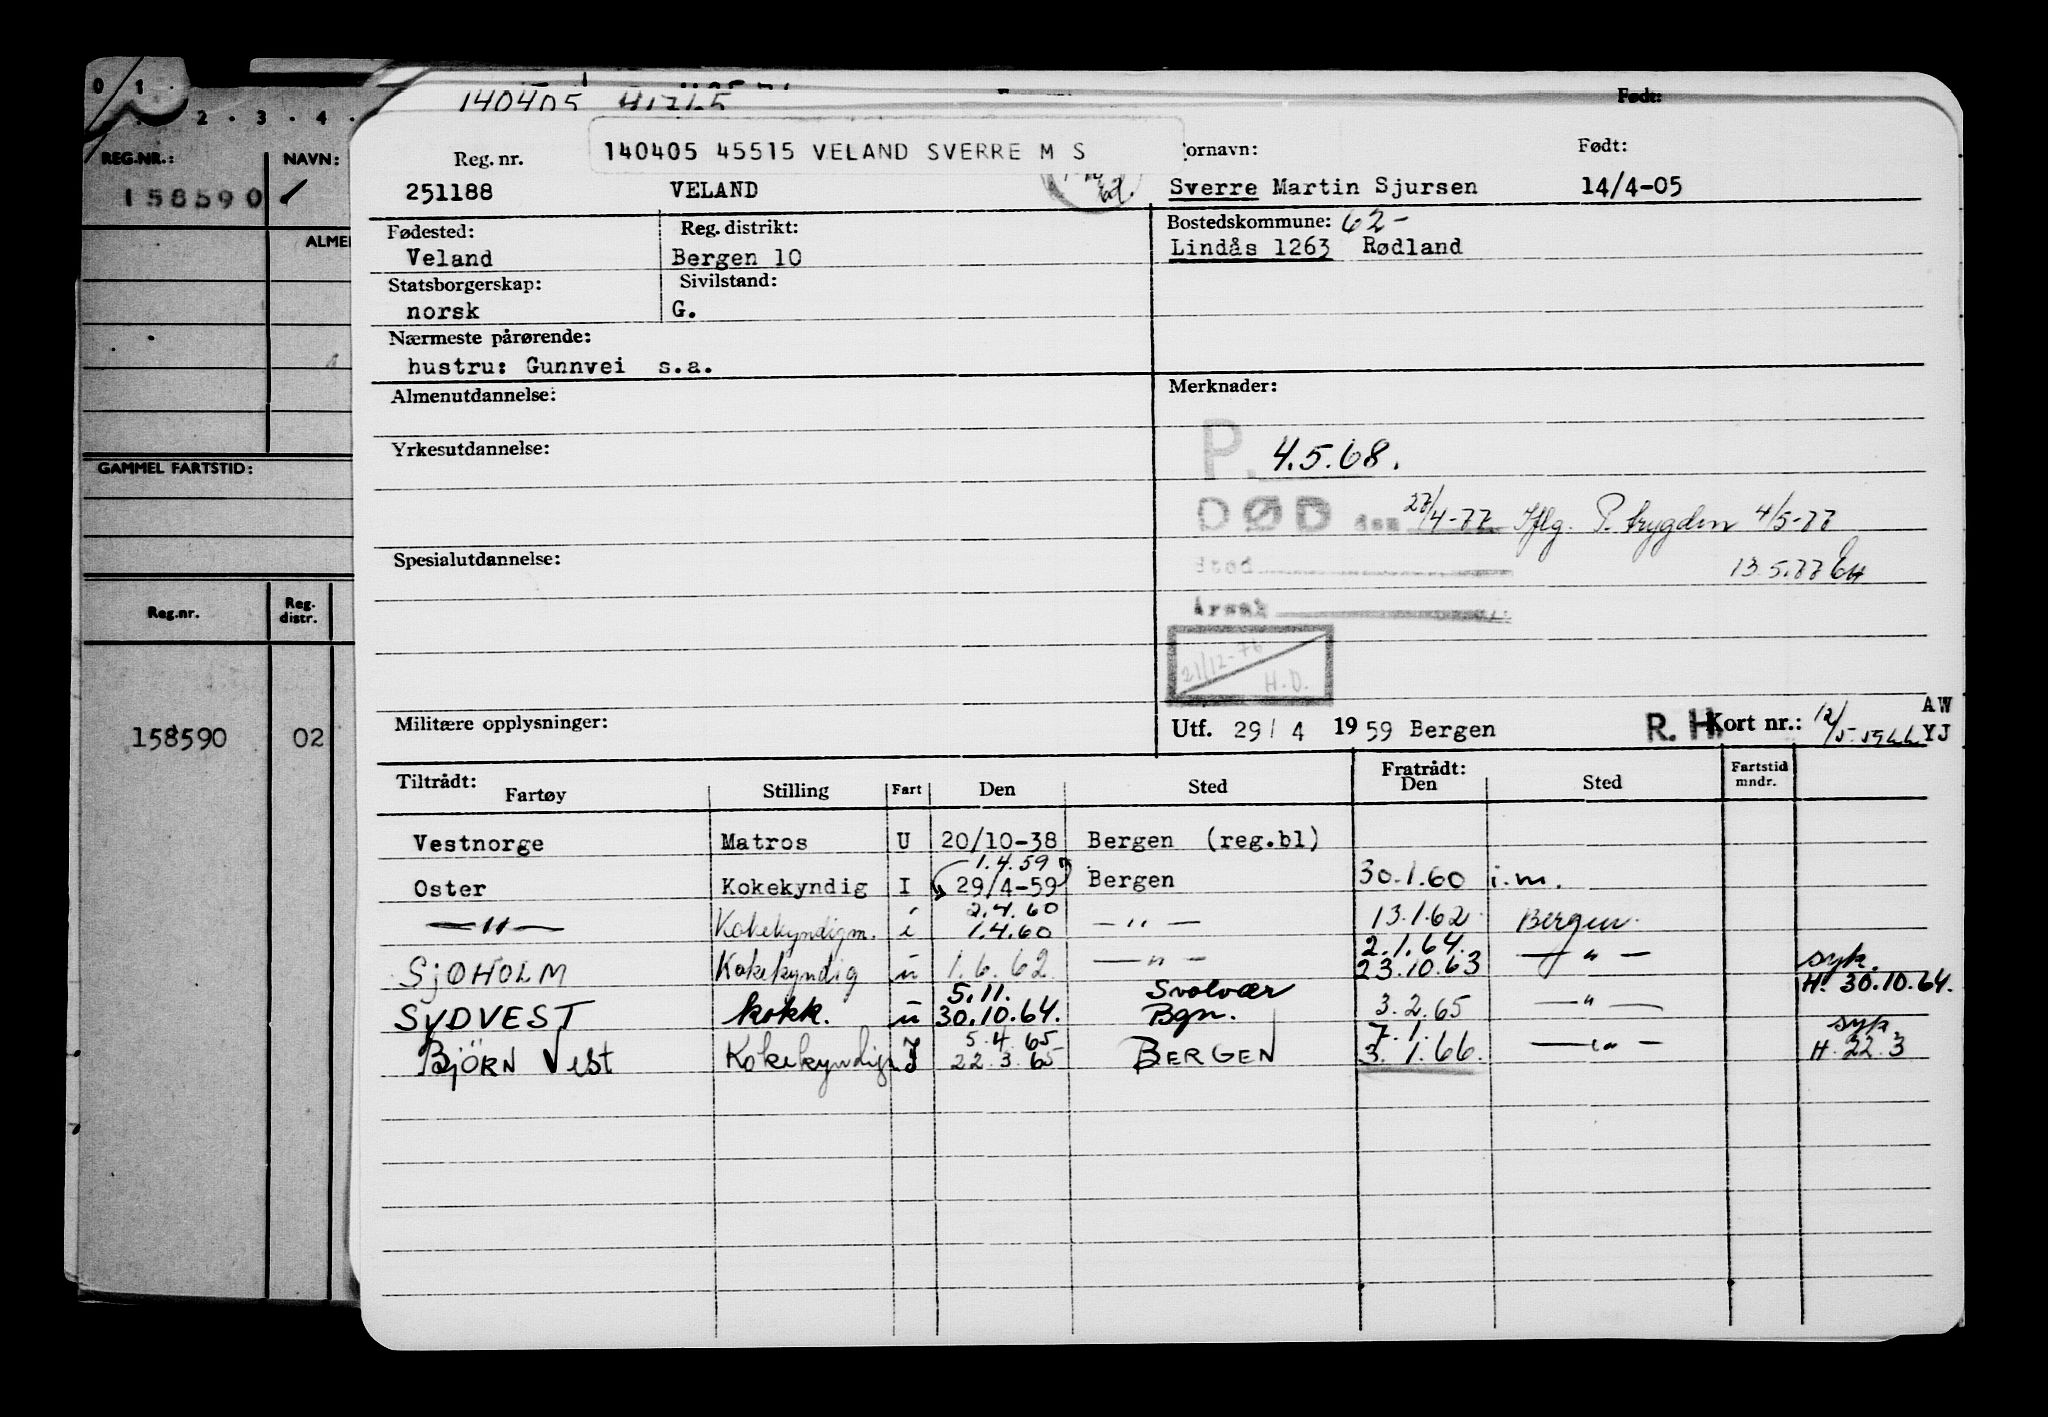 0 1 .
2 . 3 . 4 .
REG.NR.: NAVN:
158590
ALME
GAMMEL FARTSTID:
Reg.nr. Reg. distr.
158590 02
140405
Født:
140405 45515 VELAND SVERRE M S
Reg. nr. ornavn: Født:
251188 VELAND Sverre Martin Sjursen 14/4-05
Fødested: Reg. distrikt: Bostedskommune: 62-
Veland Bergen 10 Lindås 1263 Rødland
Statsborgerskap: Sivilstand:
norsk G.
Nærmeste pårørende:
hustru: Gunnvei s.a.
Almenutdannelse: Merknader:
Yrkesutdannelse: P. 4.5.68.
DØD den 27/4-77 Iflg. P. trygden 4/5-77
Spesialutdannelse: Sted 13.5.77
Årsak
21/12-76
H.D.
Militære opplysninger: Utf. 29/4 1959 Bergen R.H. Kort nr.: AW
YJ
Tiltrådt: Fratrådt:
Fartøy Stilling Fart Den Sted Den Sted Fartstid mndr.
Vestnorge Matros U 20/10-38 Bergen (reg.bl)
1.4.59
Oster Kokekyndig I 29/4-59 Bergen 30.1.60 i.m.
2.4.60
— " — Kokekyndigm. i 1.4.60 — " — 13.1.62 Bergen.
2.1.64. syk.
SjØHOLM Kokekyndig u 1.6.62 — " — 23.10.63 — " — H. 30.10.64.
5.11. Svolvær
SYDVEST kokk. u 30.10.64. Bgn. 3.2.65 — " —
5.4.65 7.1. syk
BjÖRN Vest Kokekyndig I 22.3.65 BERGEN 3.1.66. — " — H. 22.3